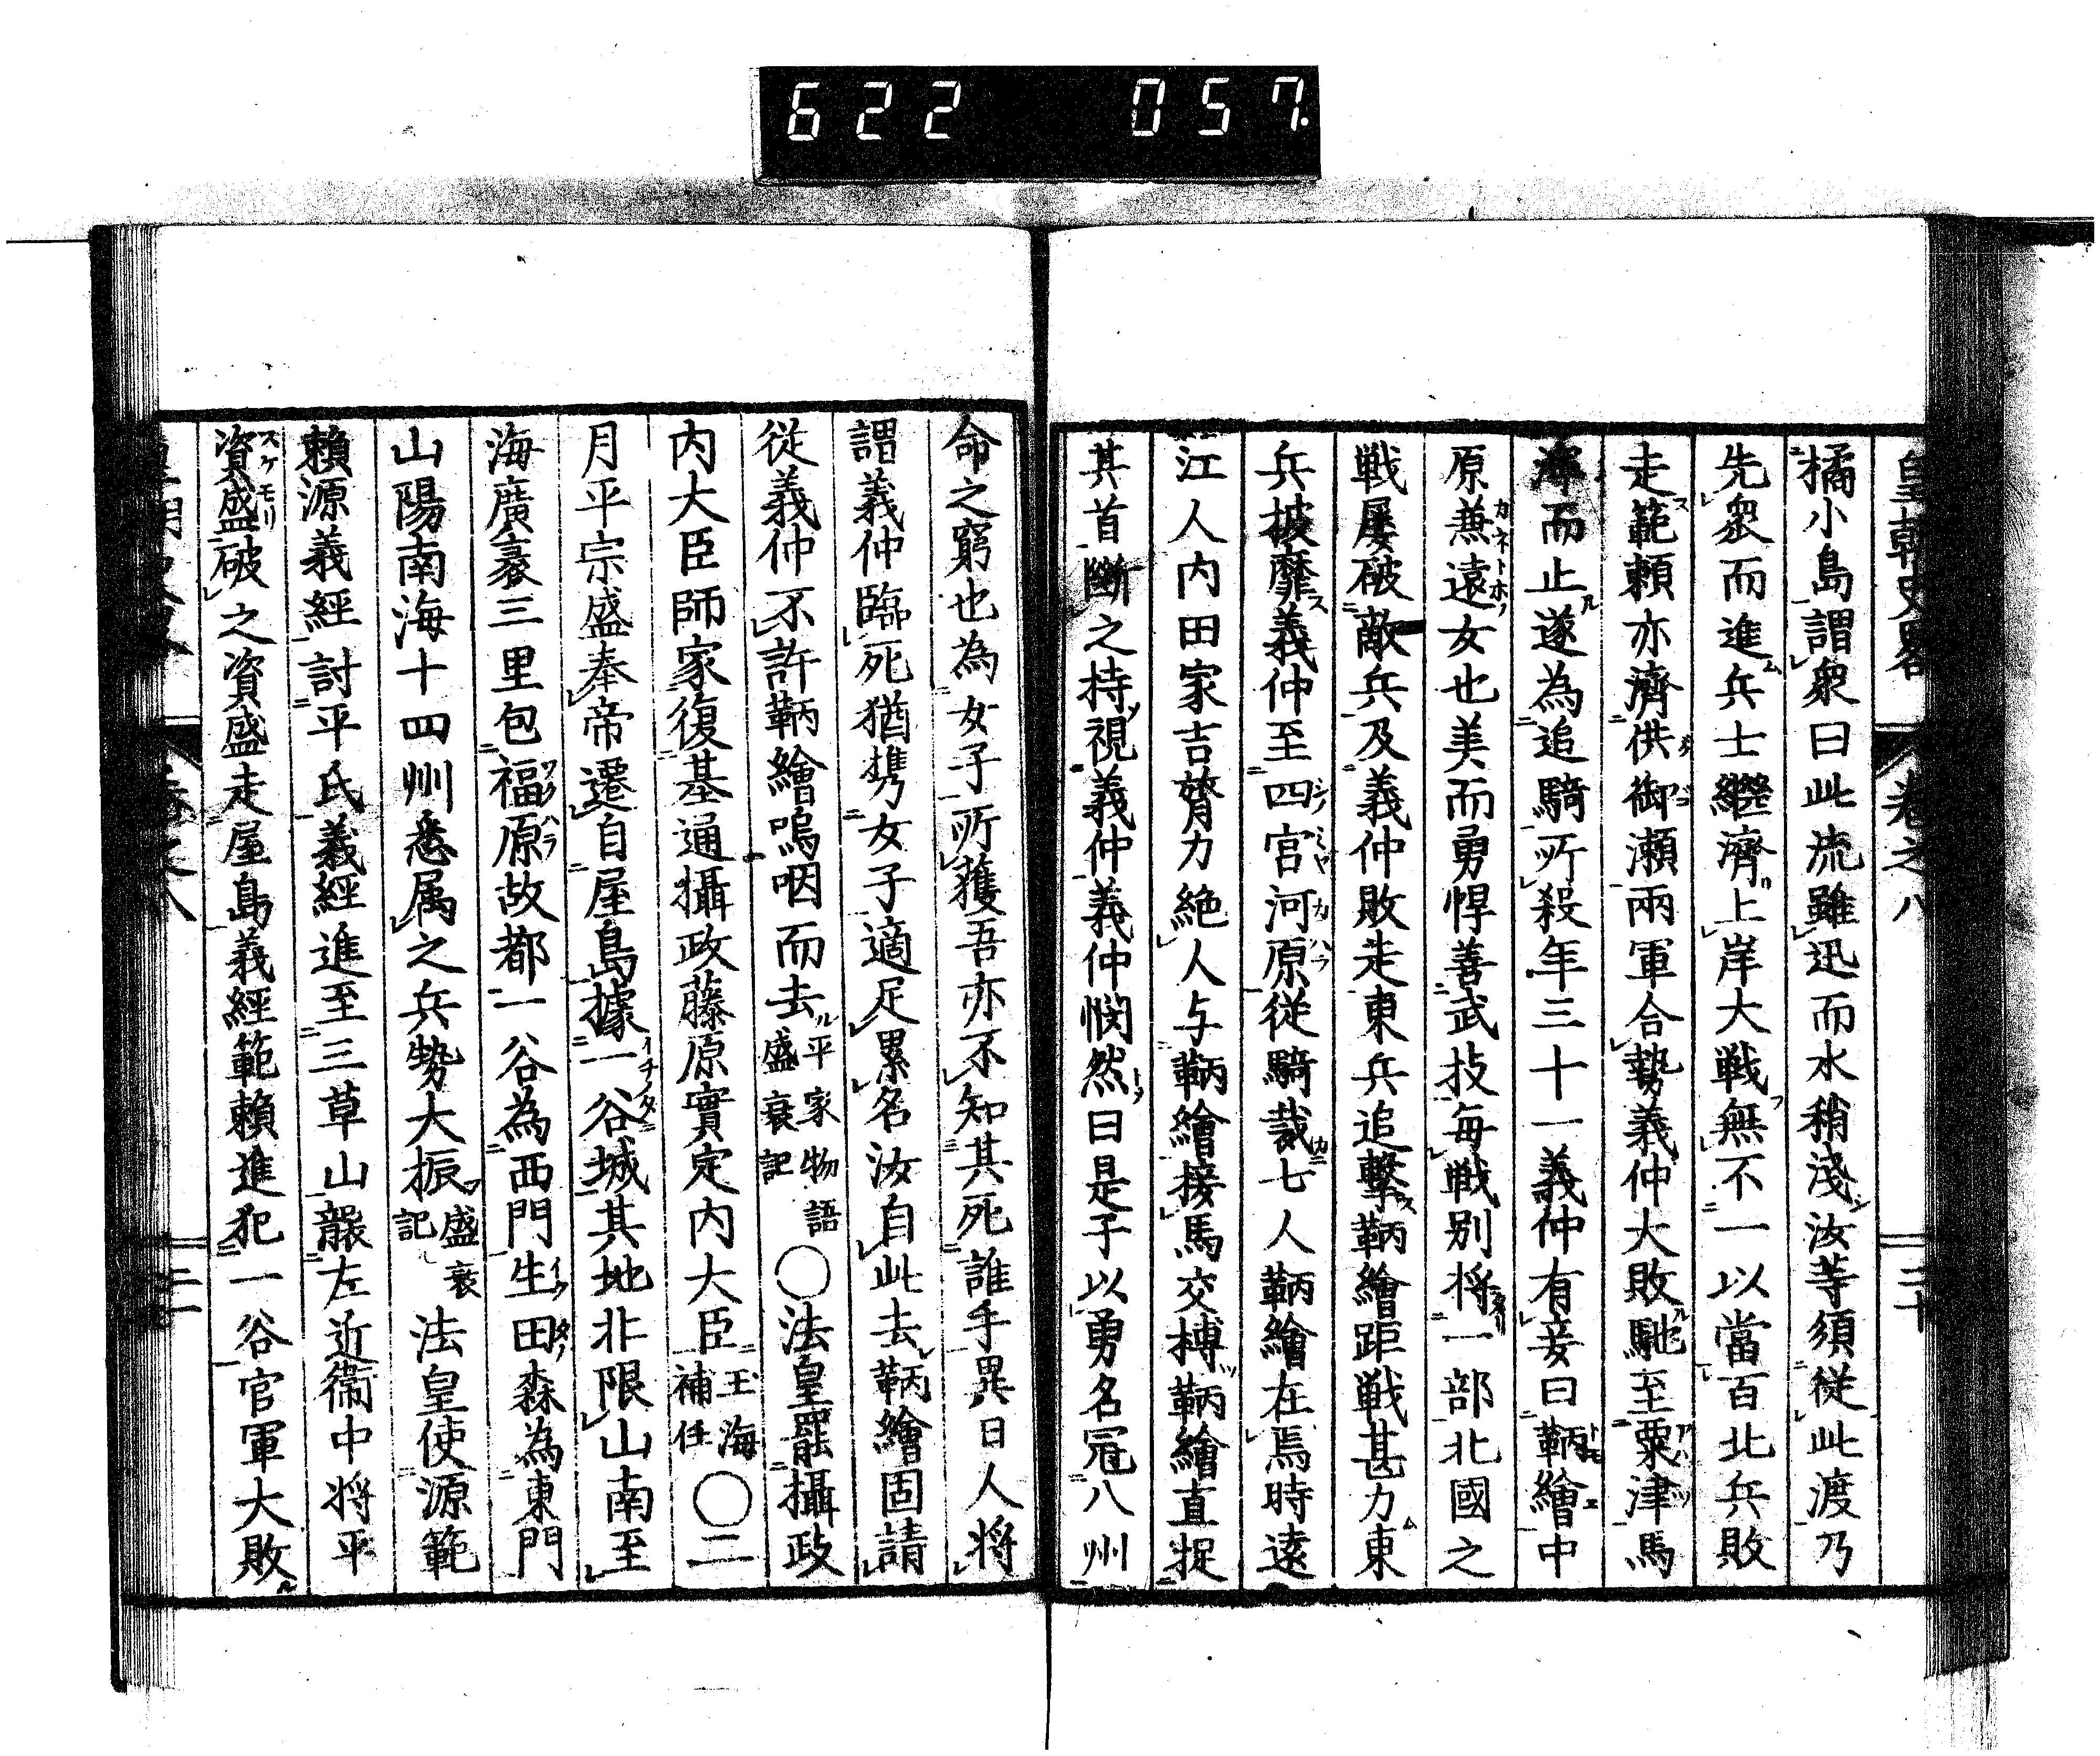 622 057
皇朝史畧 卷之八 二十
橘小島謂衆曰此流雖迅而水稍淺汝等須從此渡乃
先衆而進兵士繼濟上岸大戰無不一以當百北兵敗
走範頼亦濟供御瀬兩軍合勢義仲大敗馳至粟津馬
濘而止遂為追騎所殺年三十一義仲有妾曰鞆繪中
原兼遠女也美而勇悍善武技每戰別将一部北國之
戰屢破敵兵及義仲敗走東兵追擊鞆繪距戰甚力東
兵披靡義仲至四宮河原從騎裁七人鞆繪在焉時遠
江人内田家吉膂力絶人与鞆繪接馬交搏鞆繪直捉
其首斷之持視義仲義仲憫然曰是子以勇名冠八州
命之窮也為女子所獲吾亦不知其死誰手異日人将
謂義仲臨死猶携女子適足累名汝自此去鞆繪固請
從義仲不許鞆繪嗚咽而去平家物語盛衰記〇法皇罷攝政
内大臣師家復基通攝政藤原實定内大臣玉海補任〇二
月平宗盛奉帝遷自屋島據一谷城其地非限山南至
海廣袤三里包福原故都一谷為西門生田森為東門
山陽南海十四州悉属之兵勢大振盛衰記法皇使源範
頼源義經討平氏義經進至三草山襲左近衞中将平
資盛破之資盛走屋島義經範頼進犯一谷官軍大敗